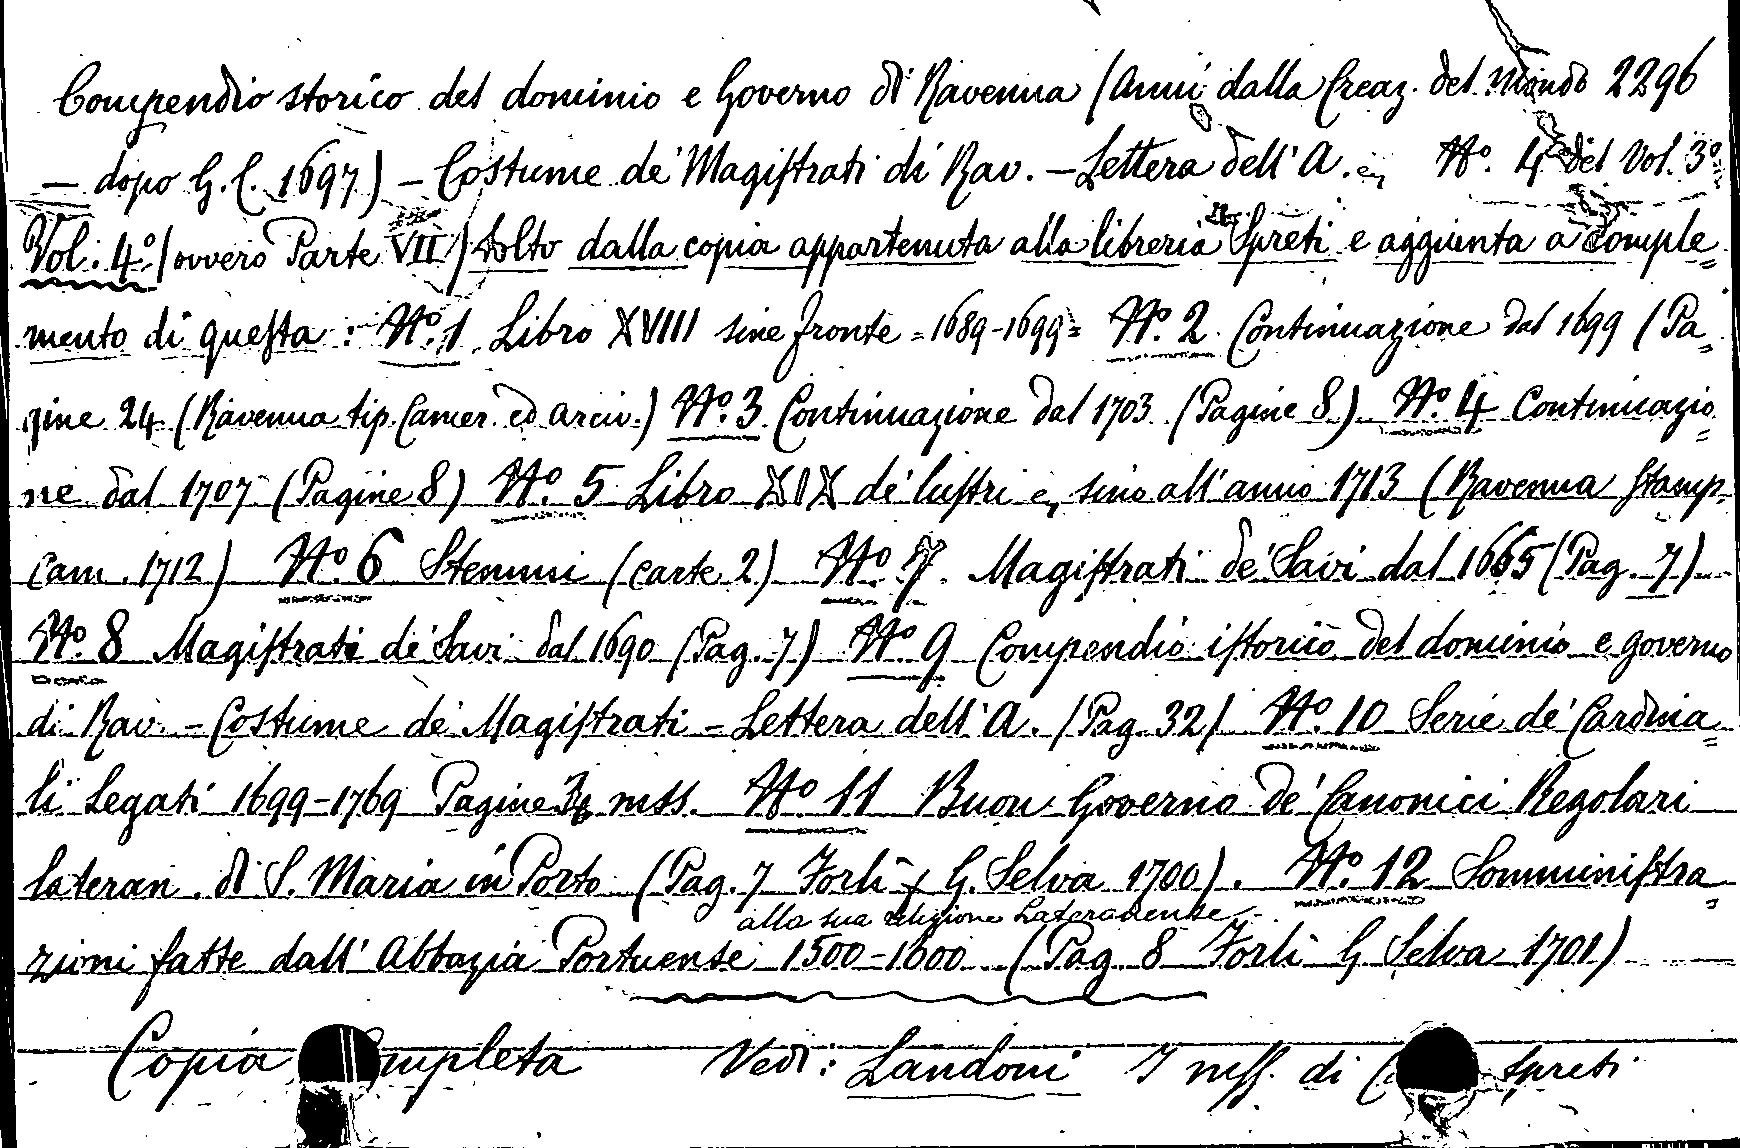 Compendio storico del dominio e Governo di Ravenna (Anni dalla Creaz. del Mondo 2296
— dopo G. C. 1697) — Costume de' Magistrati di Rav. — Lettera dell'A. N.° 4 del Vol. 3°
Vol. 4° (ovvero Parte VII) tolto dalla copia appartenuta alla libreria Spreti e aggiunta a comple=
mento di questa: N.° 1 Libro XVIII sine fronte = 1689-1699 = N.° 2 Continuazione dal 1699 (Pa=
gine 24 (Ravenna tip. Camer. ed arciv.) N.° 3 Continuazione dal 1703 (Pagine 8) N.° 4 Continuazio=
ne dal 1707 (Pagine 8) N.° 5 Libro XIX de' lustri e, sino all'anno 1713 (Ravenna Stamp.
Cam. 1712) N.° 6 Stemmi (carte 2) N.° 7. Magistrati de' Savi dal 1665 (Pag. 7)
N.° 8 Magistrati de' Savi dal 1690 (Pag. 7) N.° 9 Compendio istorico del dominio e governo
di Rav. = Costume de' Magistrati = Lettera dell'A. (Pag. 32) N.° 10 Serie de' Cardina=
li Legati 1699-1769 Pagine mss. N.° 11 Buon Governo de' Canonici Regolari
lateran. di S. Maria in Porto (Pag. 7 Forlì G. Selva 1700). N.° 12 Somministra=
alla sua religione Lateranense
zioni fatte dall'Abbazia Portuense 1500-1600 (Pag. 8 Forlì G. Selva 1701)
Copia completa Vedi: Landoni I mss. di Spreti